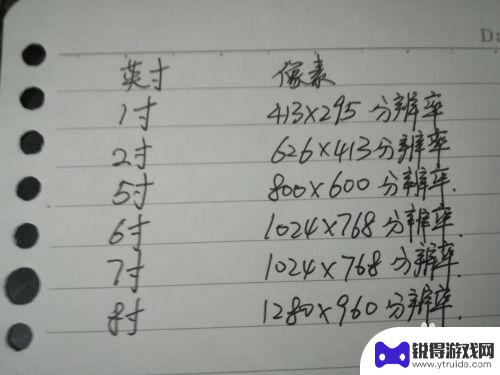 Da
英寸 像素
1寸 413×295 分辨率
2寸 626×413分辨率
5寸 800×600分辨率.
6寸 1024×768分辨率.
7寸 1024×768 分辨率.
8寸 1280×960分辨率.
锐得游戏网
www.ytruida.com